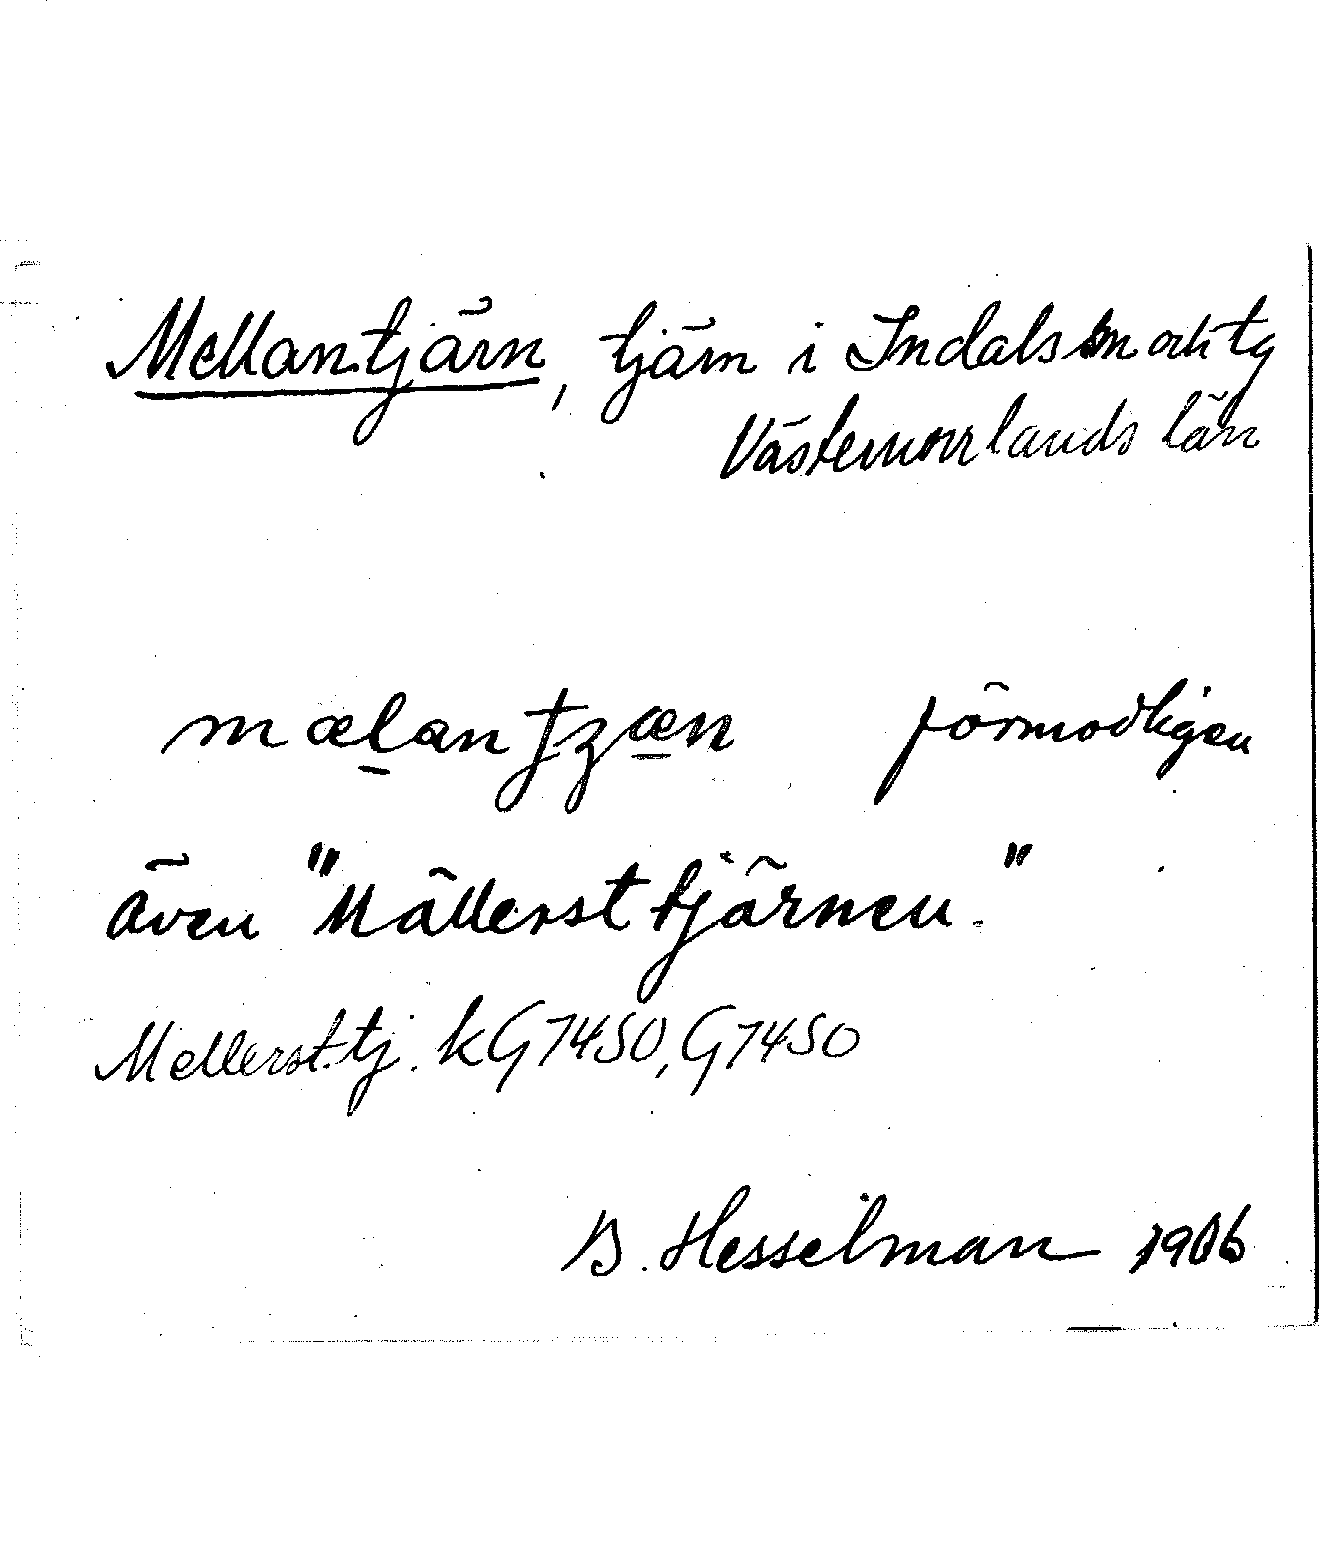 Mellantjärn, tjärn i Indals sn och tg
Västernorrlands län
mælan tzæn förmodligen
även "Mällerst tjärnen."
Mellerst.tj. kG7450, G7450
B. Hesselman 1906